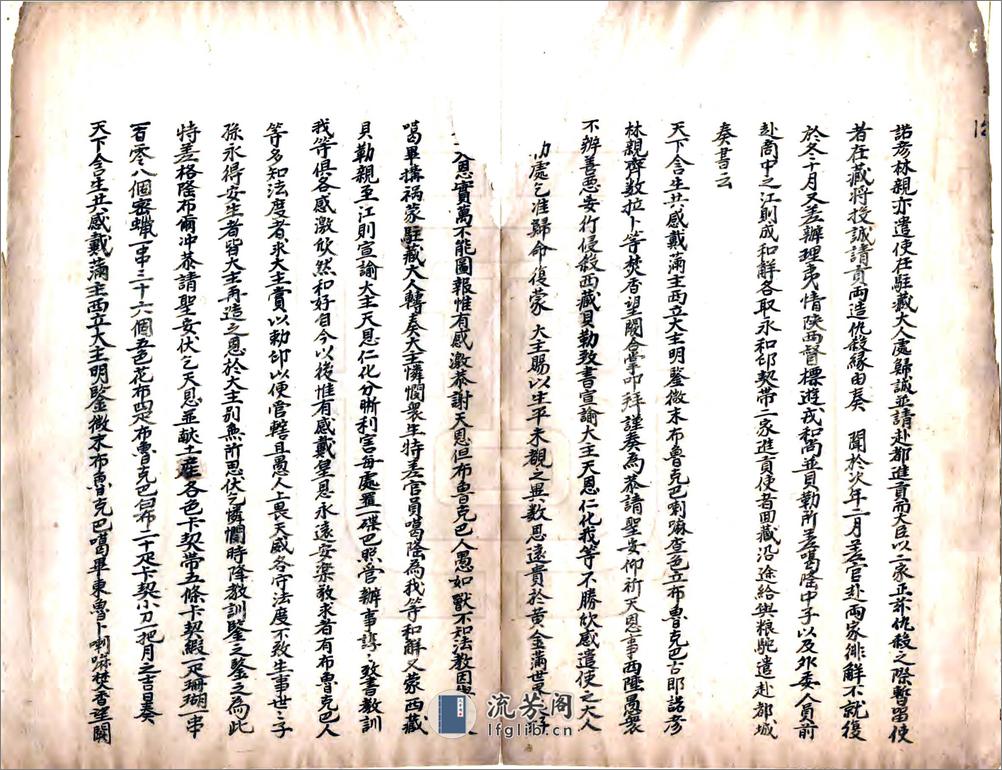 諾彥林親亦遣使在駐藏大人處歸誠並請赴都進貢而大臣以二家正在仇殺之際暫留使
者在藏將投誠請貢两造仇殺緣由奏 聞於次年二月差官赴两家徘解不就復
於冬十月又差辦理夷情陝西督標遊戎和尚並貝勒所差噶隆中子以及外委人員前
赴商中之江則成和解各取永和卬契帶二家進貢使者回藏沿途給與粮駝遣赴都城
奏書云
天下含生共感戴滿主西立大主明鑒微末布魯克巴喇嘛查色立布魯克巴古耶諾彥
林親齊敦拉卜等焚香望闕合掌叩拜謹奏為恭請聖安仰祈天恩事西陲愚衆
不辨善惡妄行侵殺西藏貝勒致書宣諭大主天恩仁化我等不勝欣感遣使之大人
處乞准歸命復蒙 大主賜以生平未覩之異数恩遠貴於黃金滿世
恩實萬不能圖報惟有感激恭謝天恩但布魯克巴人愚如獸不知法教因
噶畢搆禍蒙駐藏大人轉奏大主憐憫衆生特差官員噶隆為我等和解又蒙西藏
貝勒親至江則宣諭大主天恩仁化分晰利害每處置一碟巴照管辦事諄之致書教訓
我等俱各感激欣然和好自今以後惟有感戴皇恩永遠安樂敎求者有布魯克巴人
等多知法度者求大主賞以勅卬以便官轄且愚人上畏天威各守法度不致生事世之子
孫永得安生者皆大主再造之恩於大主別無所思伏乞憐憫時降教訓鑒之鑒之為此
特差格隆布甭冲恭請聖安伏乞天恩並献土産各色卡契帶五條卡契緞一疋珊瑚一串
一百零八個蜜蠟一串三十六個五色花布四疋布魯克巴白布二十疋卡契小刀一把月之吉日奏
天下含生共感戴滿主西立大主明鑒微末布魯克巴噶畢東魯卜喇嘛焚香望闕
流芳阁
lfglib.cn